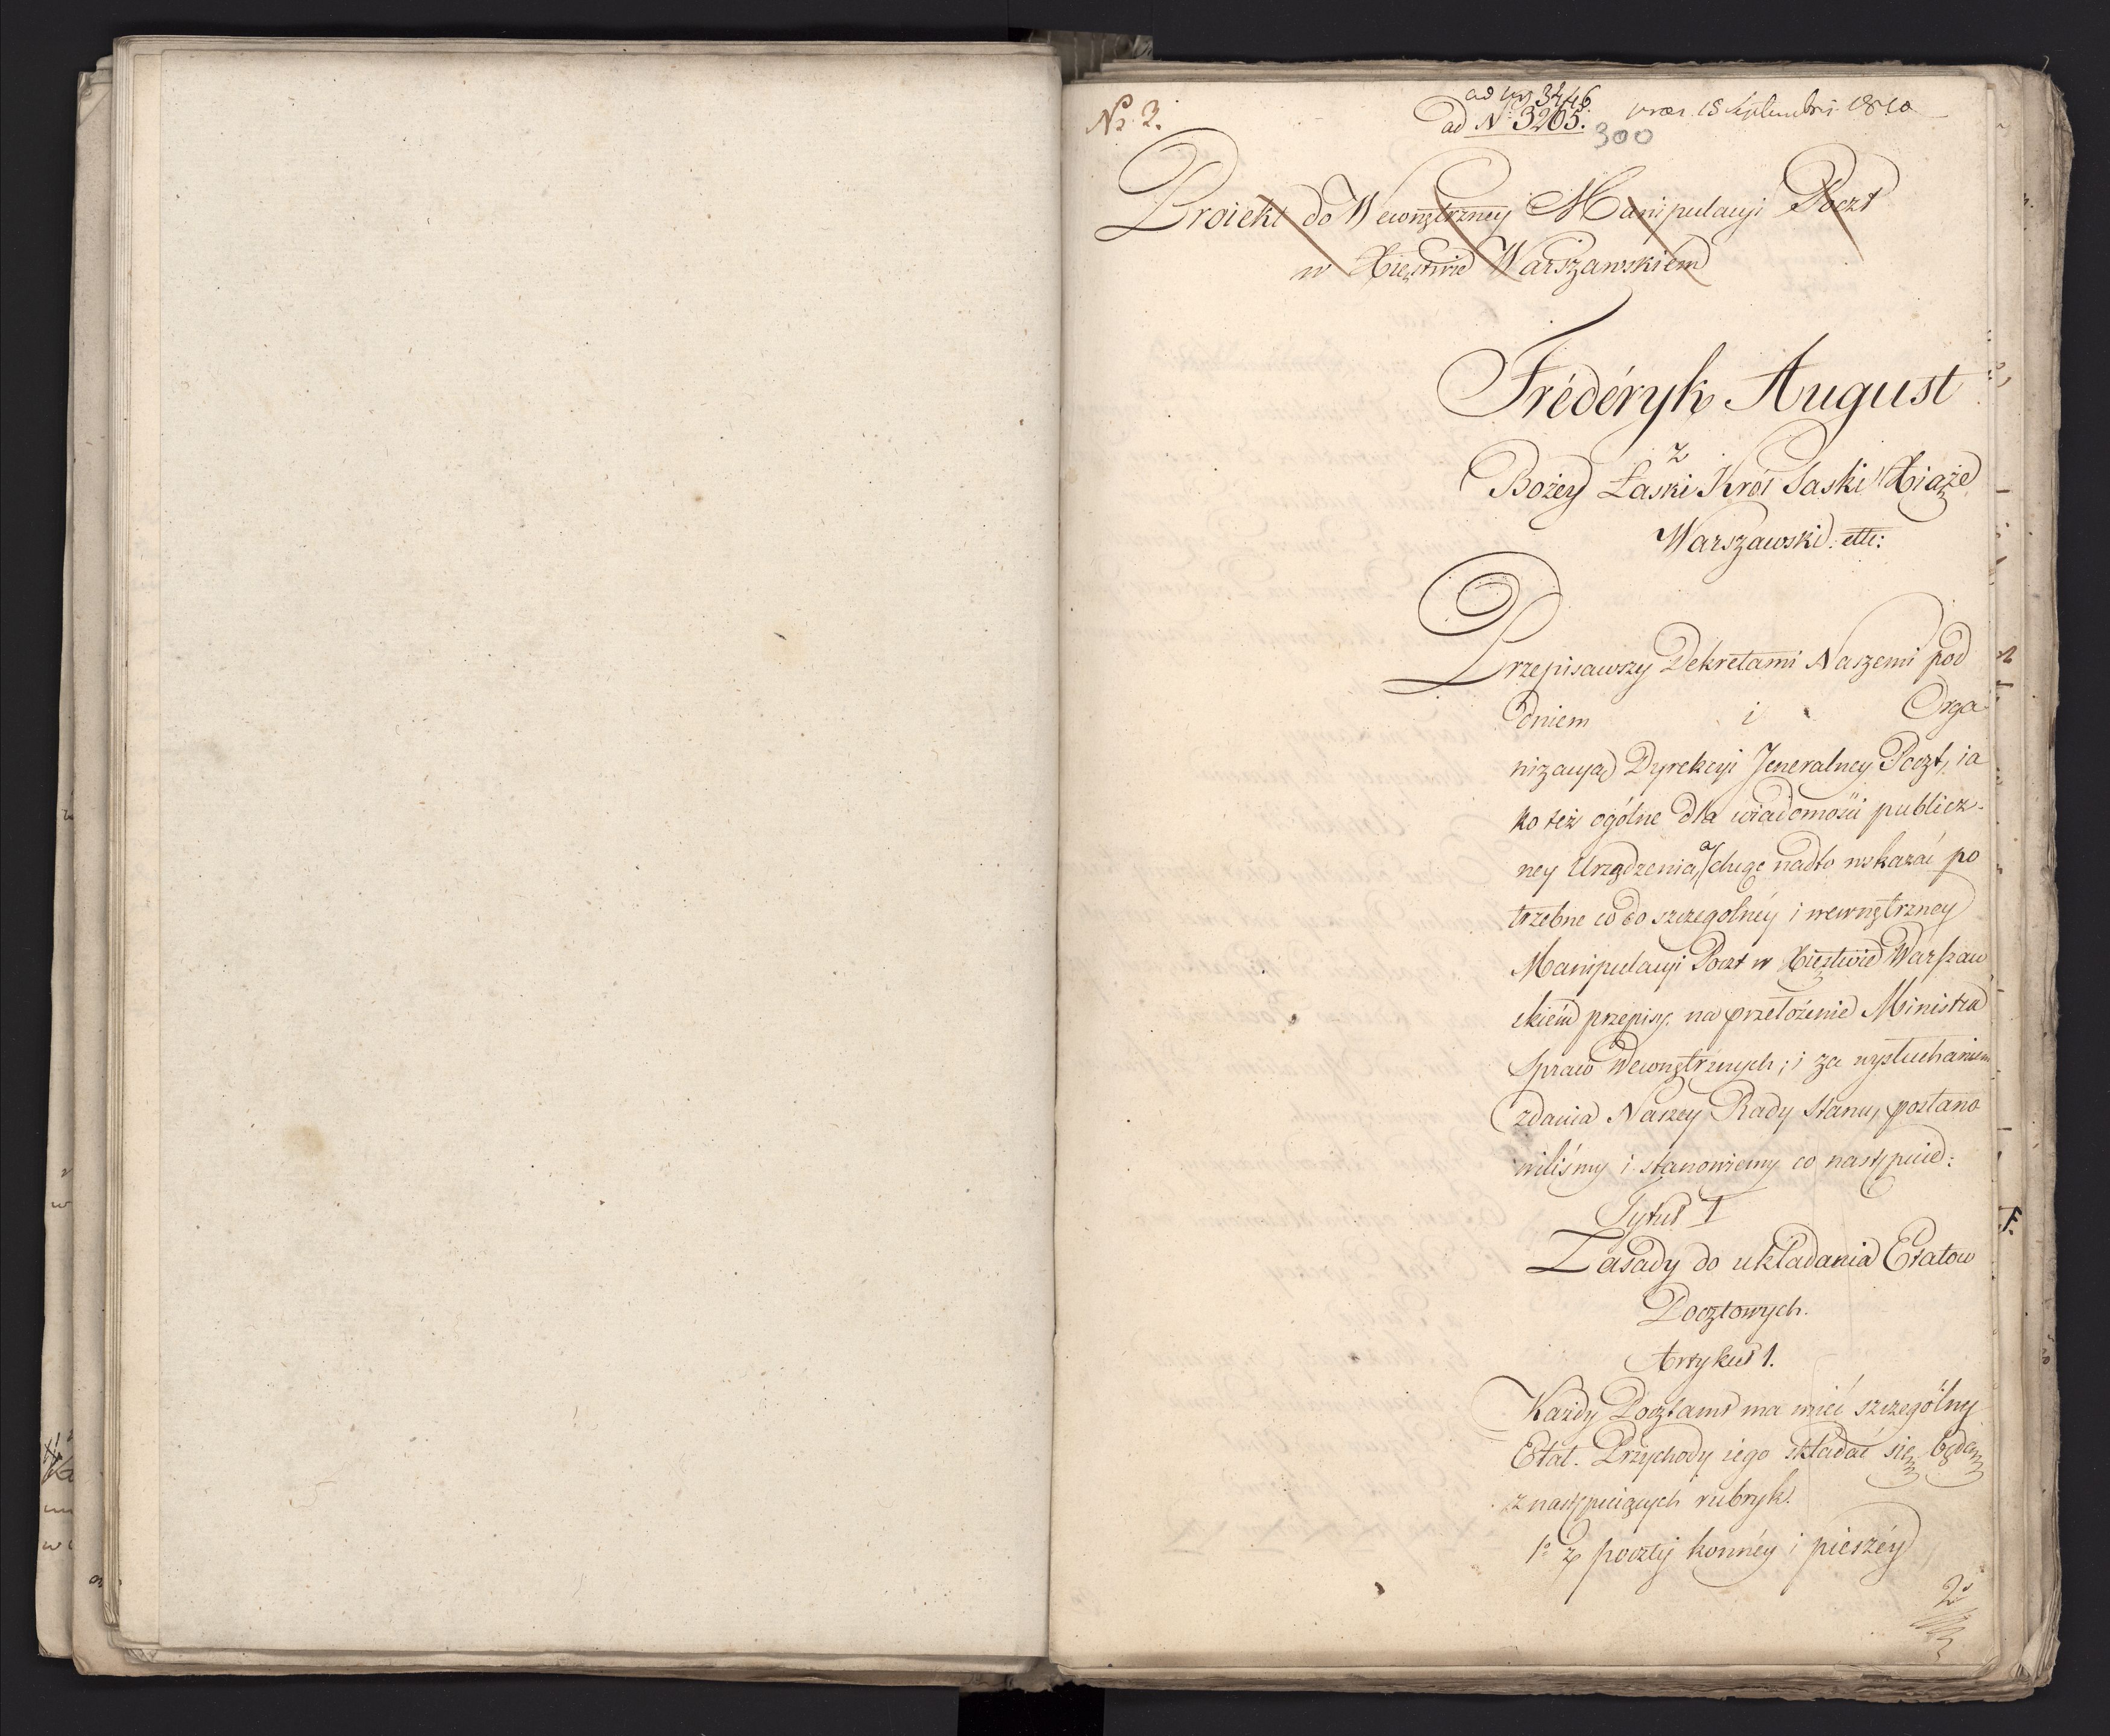 Nr. 3.
ad Nro 3446.
ad N: 3205.
præs. 18 Septembris 1810
300
Proiekt do Wewnętrzney Manipulacyi Poczt
w Xięstwie Warszawskiém
Fréderyk August
z
Bożey Łaski Król Saski Xiąże
Warszawski. etc:
Przepisawszy Dekretami Naszemi pod
dniem i Orga
nizacyą Dyrekcyi Jeneralney Poczt, ia
ko też ogólne dla wiadomości publicz-
ney Urządzenia, a chcąc nadto wskazać po
trzebne co do szczegolnéy i wewnętrzney
Manipulacyi Poczt w Xięztwie Warszaw
skiém przepisy, na przełożenie Ministra
Spraw Wewnętrznych; i za wysłuchaniem
zdania Naszey Rady Stanu, postano
wiliśmy i stanowiemy co następuie:
Tytuł I
Zasady do układania Etatow
Pocztowych.
Artykuł 1.
Każdy Pocztamt ma mieć szczególny
Etat. Przychody iego składać się będą
z następuiących rubryk.
1o z poczty konnéy i pieszéy
2o